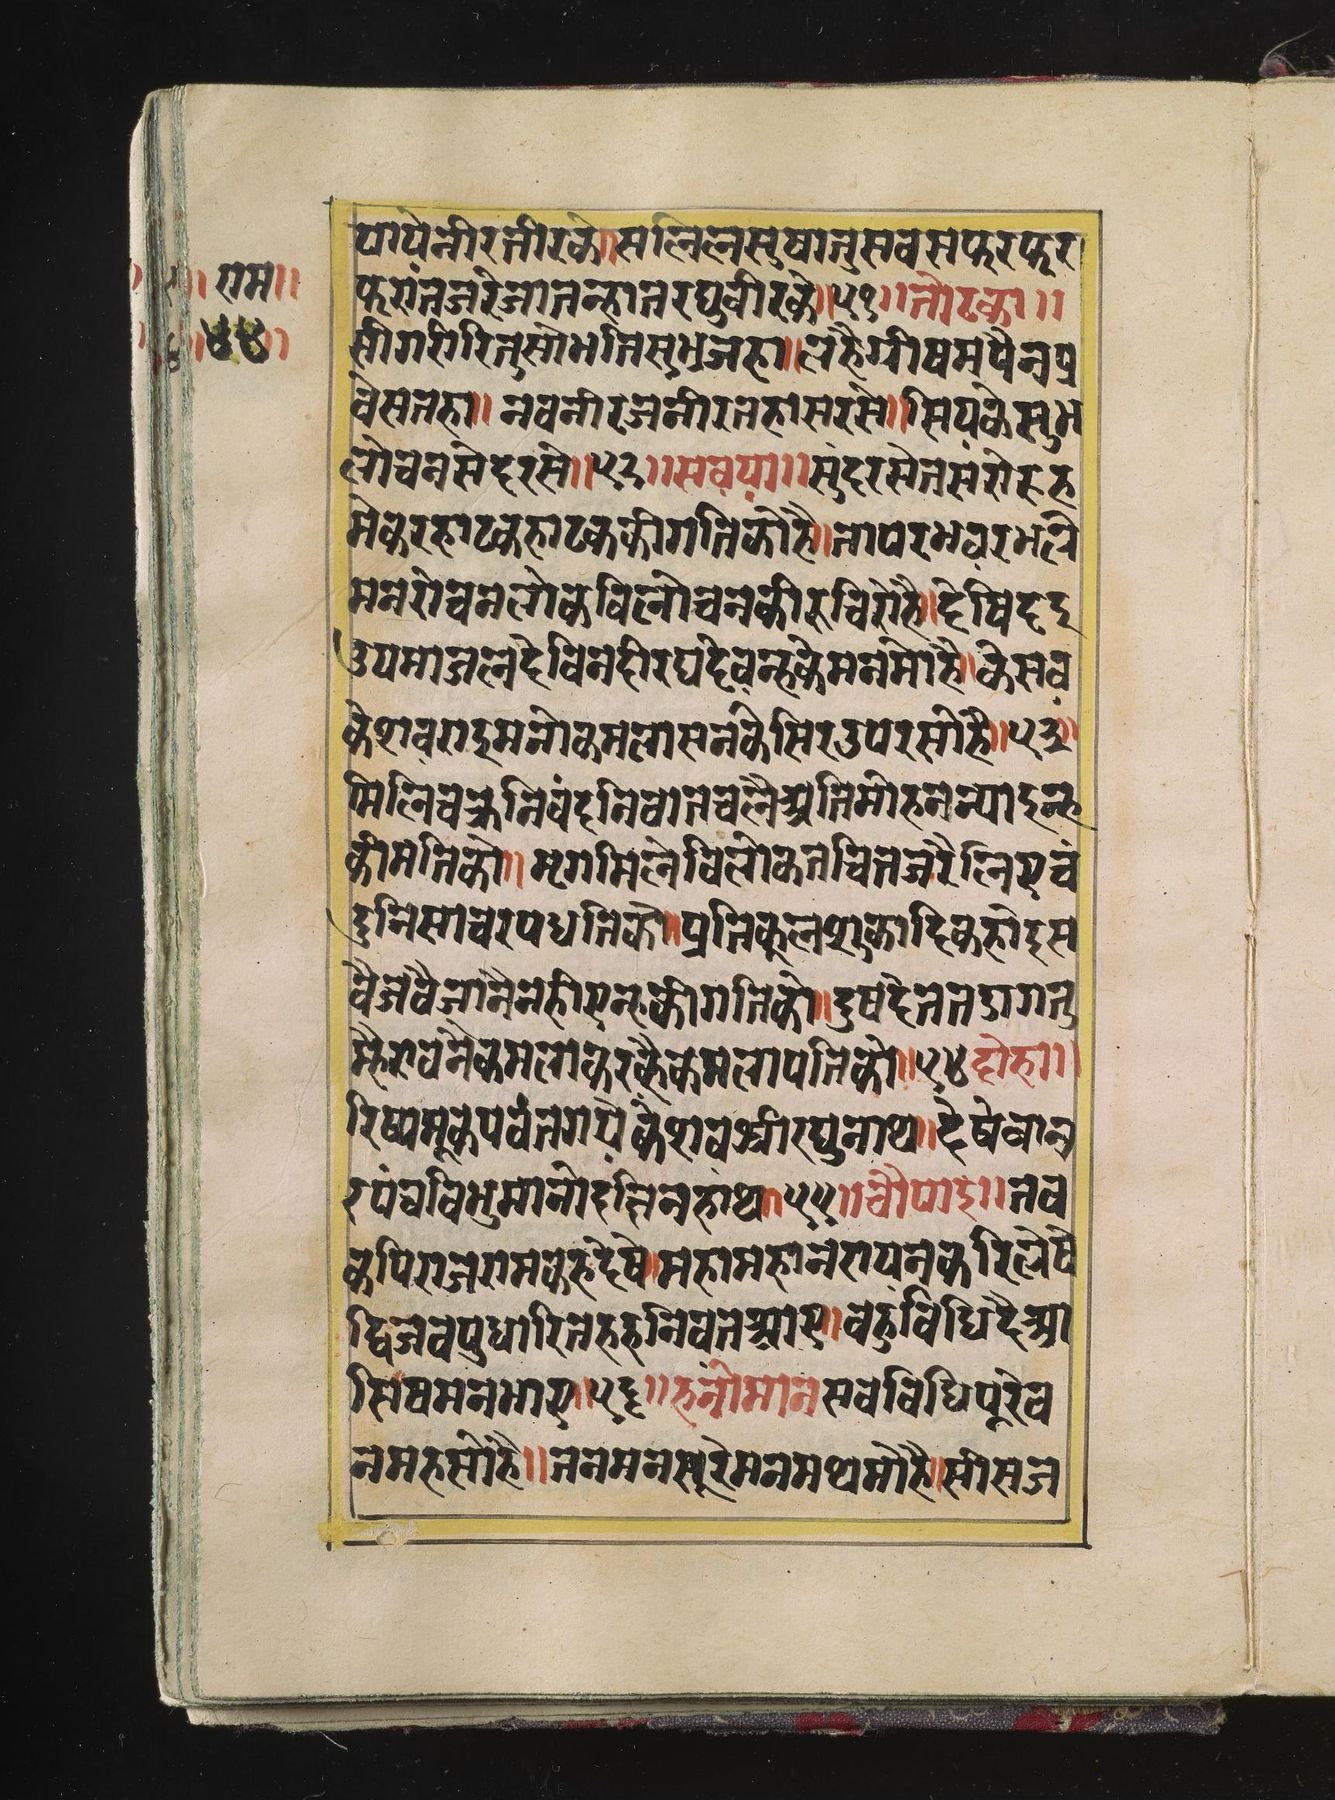 ॥राम॥
॥४४॥
पापेनीरतीरके॥सलिलसुषातुसवसफरफर
फरांतजरेजातन्हातरघुवीरके॥५१॥॥तोटका॥
सीगरीरितुसोभतिसुभ्रजहा॥लहैग्रीषमपैनप्र
वेसतहा॥नवनीरजनीरतहासरसे॥सियकेसुभ
लोचनसेदरसे॥५२॥॥सवया॥॥सुंदरसेतसरोरुह
मेकरहाटकहाटककीगतिकोहै॥तापरभवरभले
मनरोचनलोकविलोचनकीरुचिरोहै॥देषिदइ
उपमाजलदेविनदीरघदेवन्हकेमनमोहै॥केसव
केशवराइमनोकमलासनकेसिरउपरसोहै॥५३॥
मिलिचक्रनिवंदनिवातचलैअतिमोहनन्याइन्ह
कीमतिको॥मृगमित्रविलोकतचितजरैलिएचं
दुनिसाचरपद्धतिको॥प्रतिकूलशुकादिकहोइस
वैजवैजानैनहीएन्हकीगतिको॥दुषदेततडागतु
म्हैरावनैकमलाकरकैकमलापतिको॥५४दोहा॥
रिष्यमूकपर्वतगयेकेशवश्रीरघुनाथ॥देषेवान
रपंचविभुमानोदछिनहाथ॥५५॥॥चौपाइ॥॥तव
कपिराजरामकहदेषे॥महामहानरायनकरिलेषे
द्विजवपुधारितहहनिवतआए॥वहुविधिदैआ
सिषमनभाए॥५६॥॥हनोमान॥सवविधिपूरेव
नमहसोहै॥तनमनसूरेमनमथमोहै॥सीसज